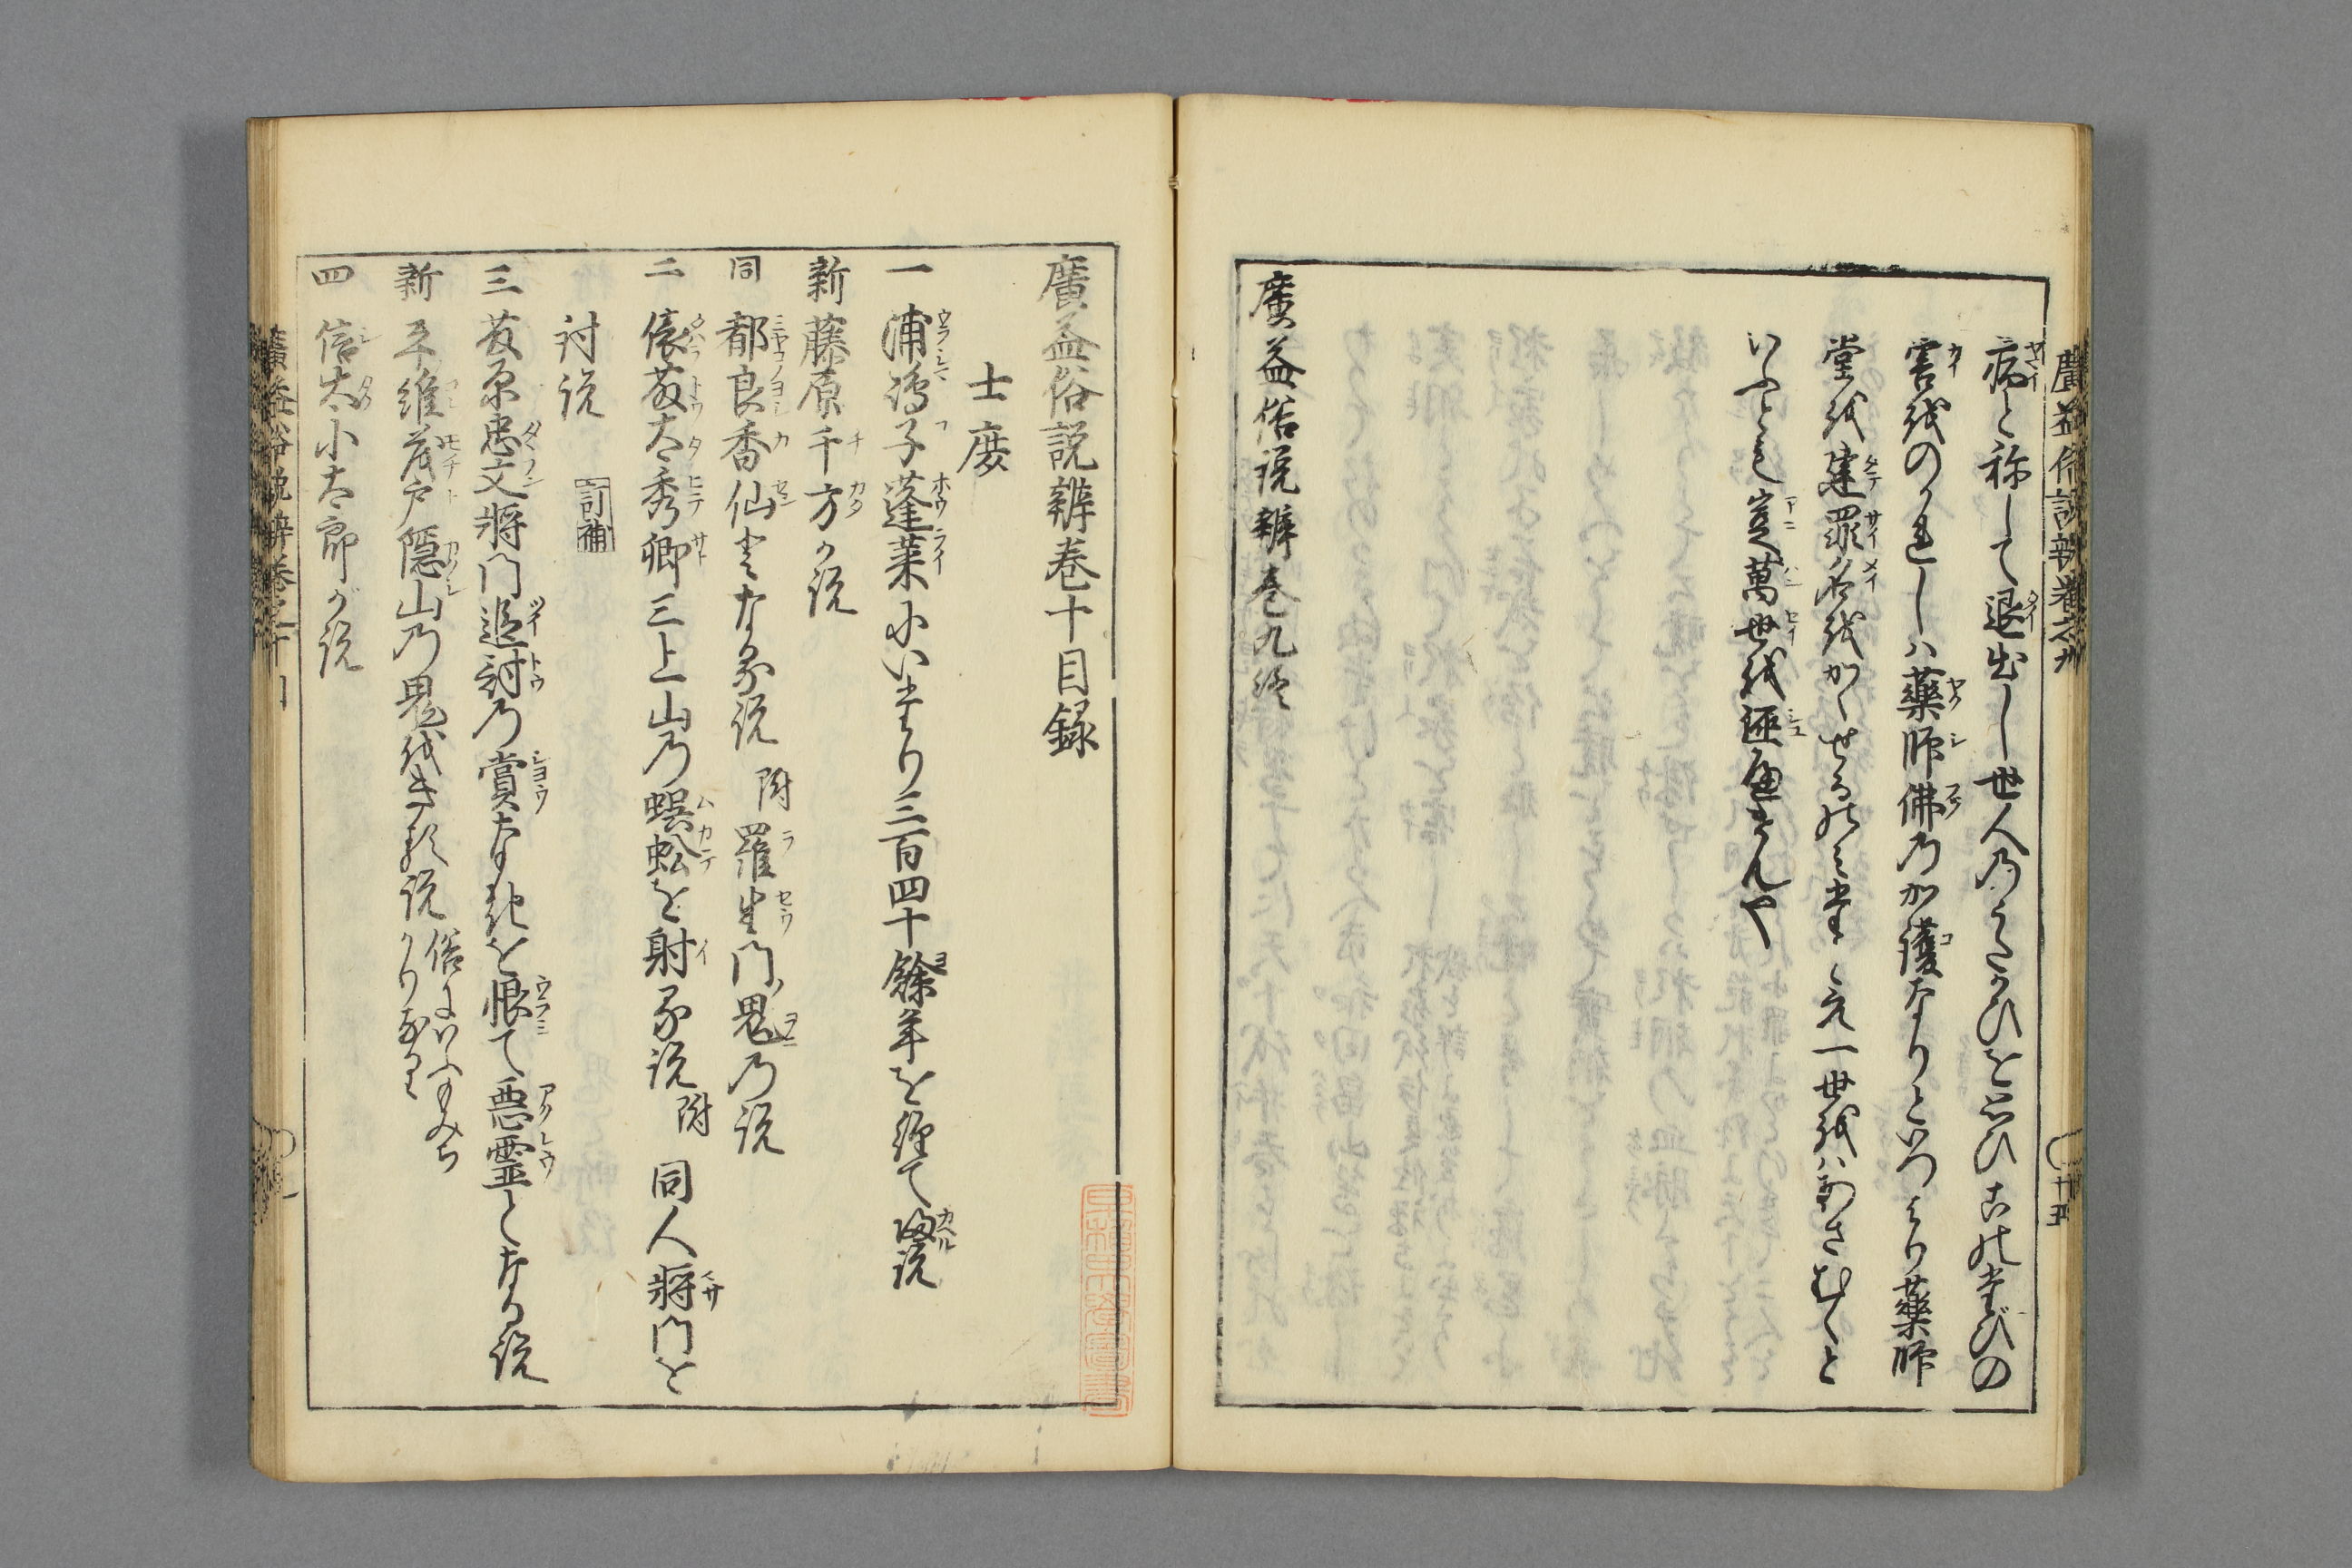 廣益俗説辨巻之九
十五
病と称して退出し世人のうたがひを思ひ
害をのがれしハ薬師佛の加護なりといつはり薬師
堂を建罪名を
いふとも豈萬世を誣
廣益俗説辨巻九終
廣益俗説辨巻十目録
士庶
一 浦嶋子蓬莱にいたり三百四十餘年を經て歸説
新 藤原千方が説
同 都良香仙となる説 附 羅生門鬼の説
二 俵藤太秀郷三上山の蜈蚣を射る説 附 同人将門を
討説 訂補
三 藤原忠文将门追討の賞なきを恨て悪霊となる説
新 平維茂戸隠山の鬼をきる説 俗にいふもみぢがりなり
四 信太小太郎が説
廣益俗説辨巻之十